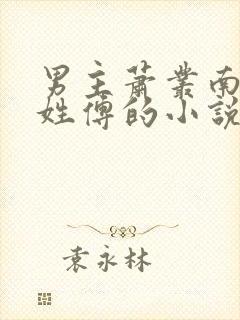 男主萧丛南
姓傅的小說
袁永林